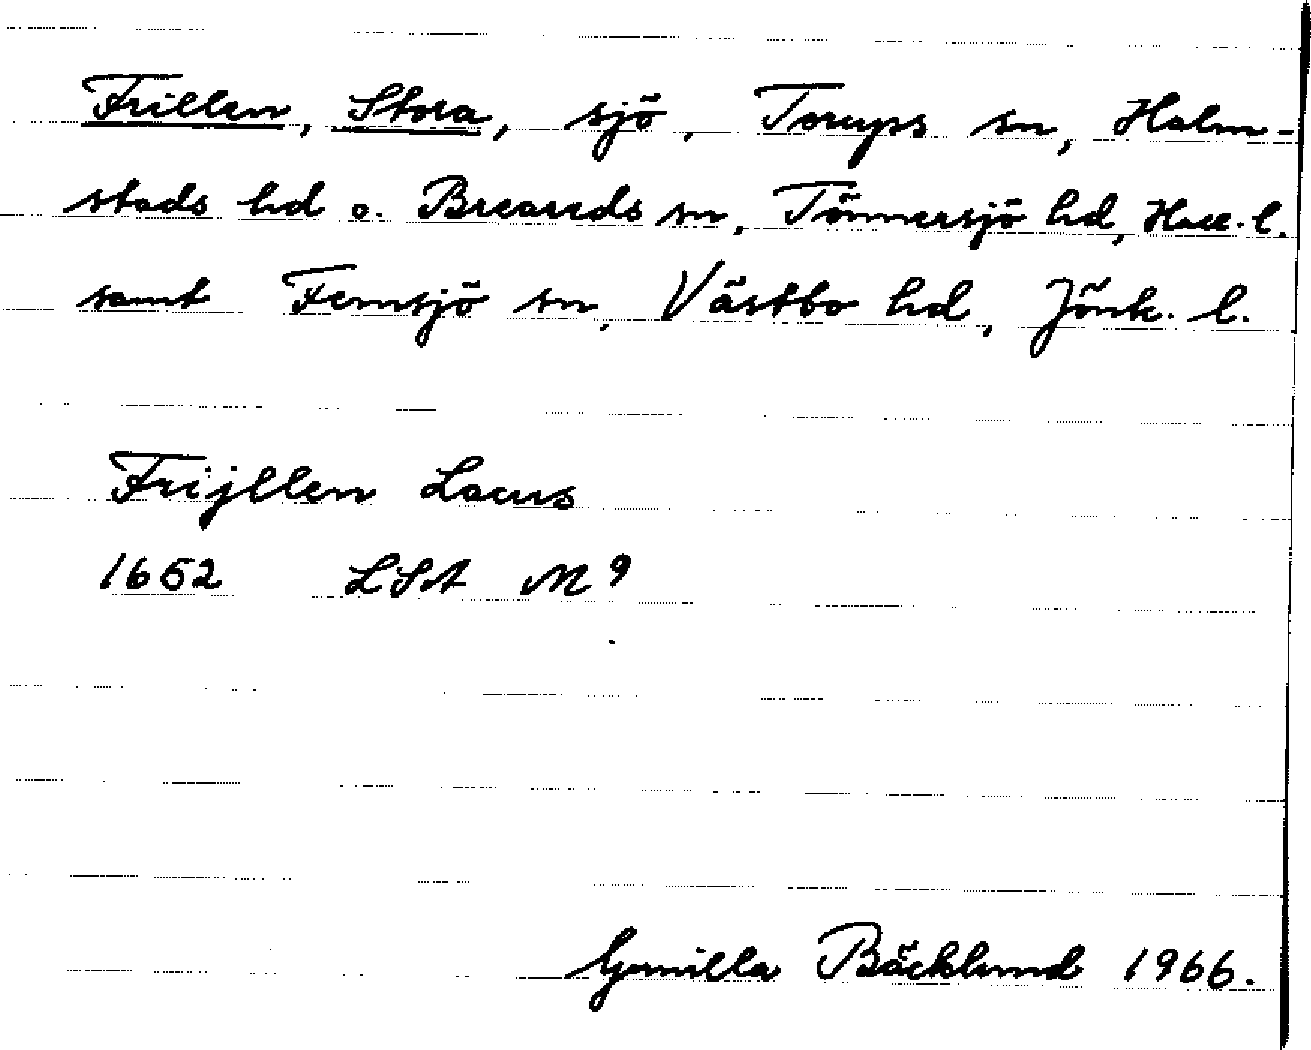 Frillen, Stora, sjö, Torups sn, Halm-
stads hd o. Breareds sn, Tönnersjö hd, Hall. l.
samt Femsjö sn, Västbo hd, Jönk. l.
Frijllen Lacus
1652 LSA M 9
Gunilla Bäcklund 1966.